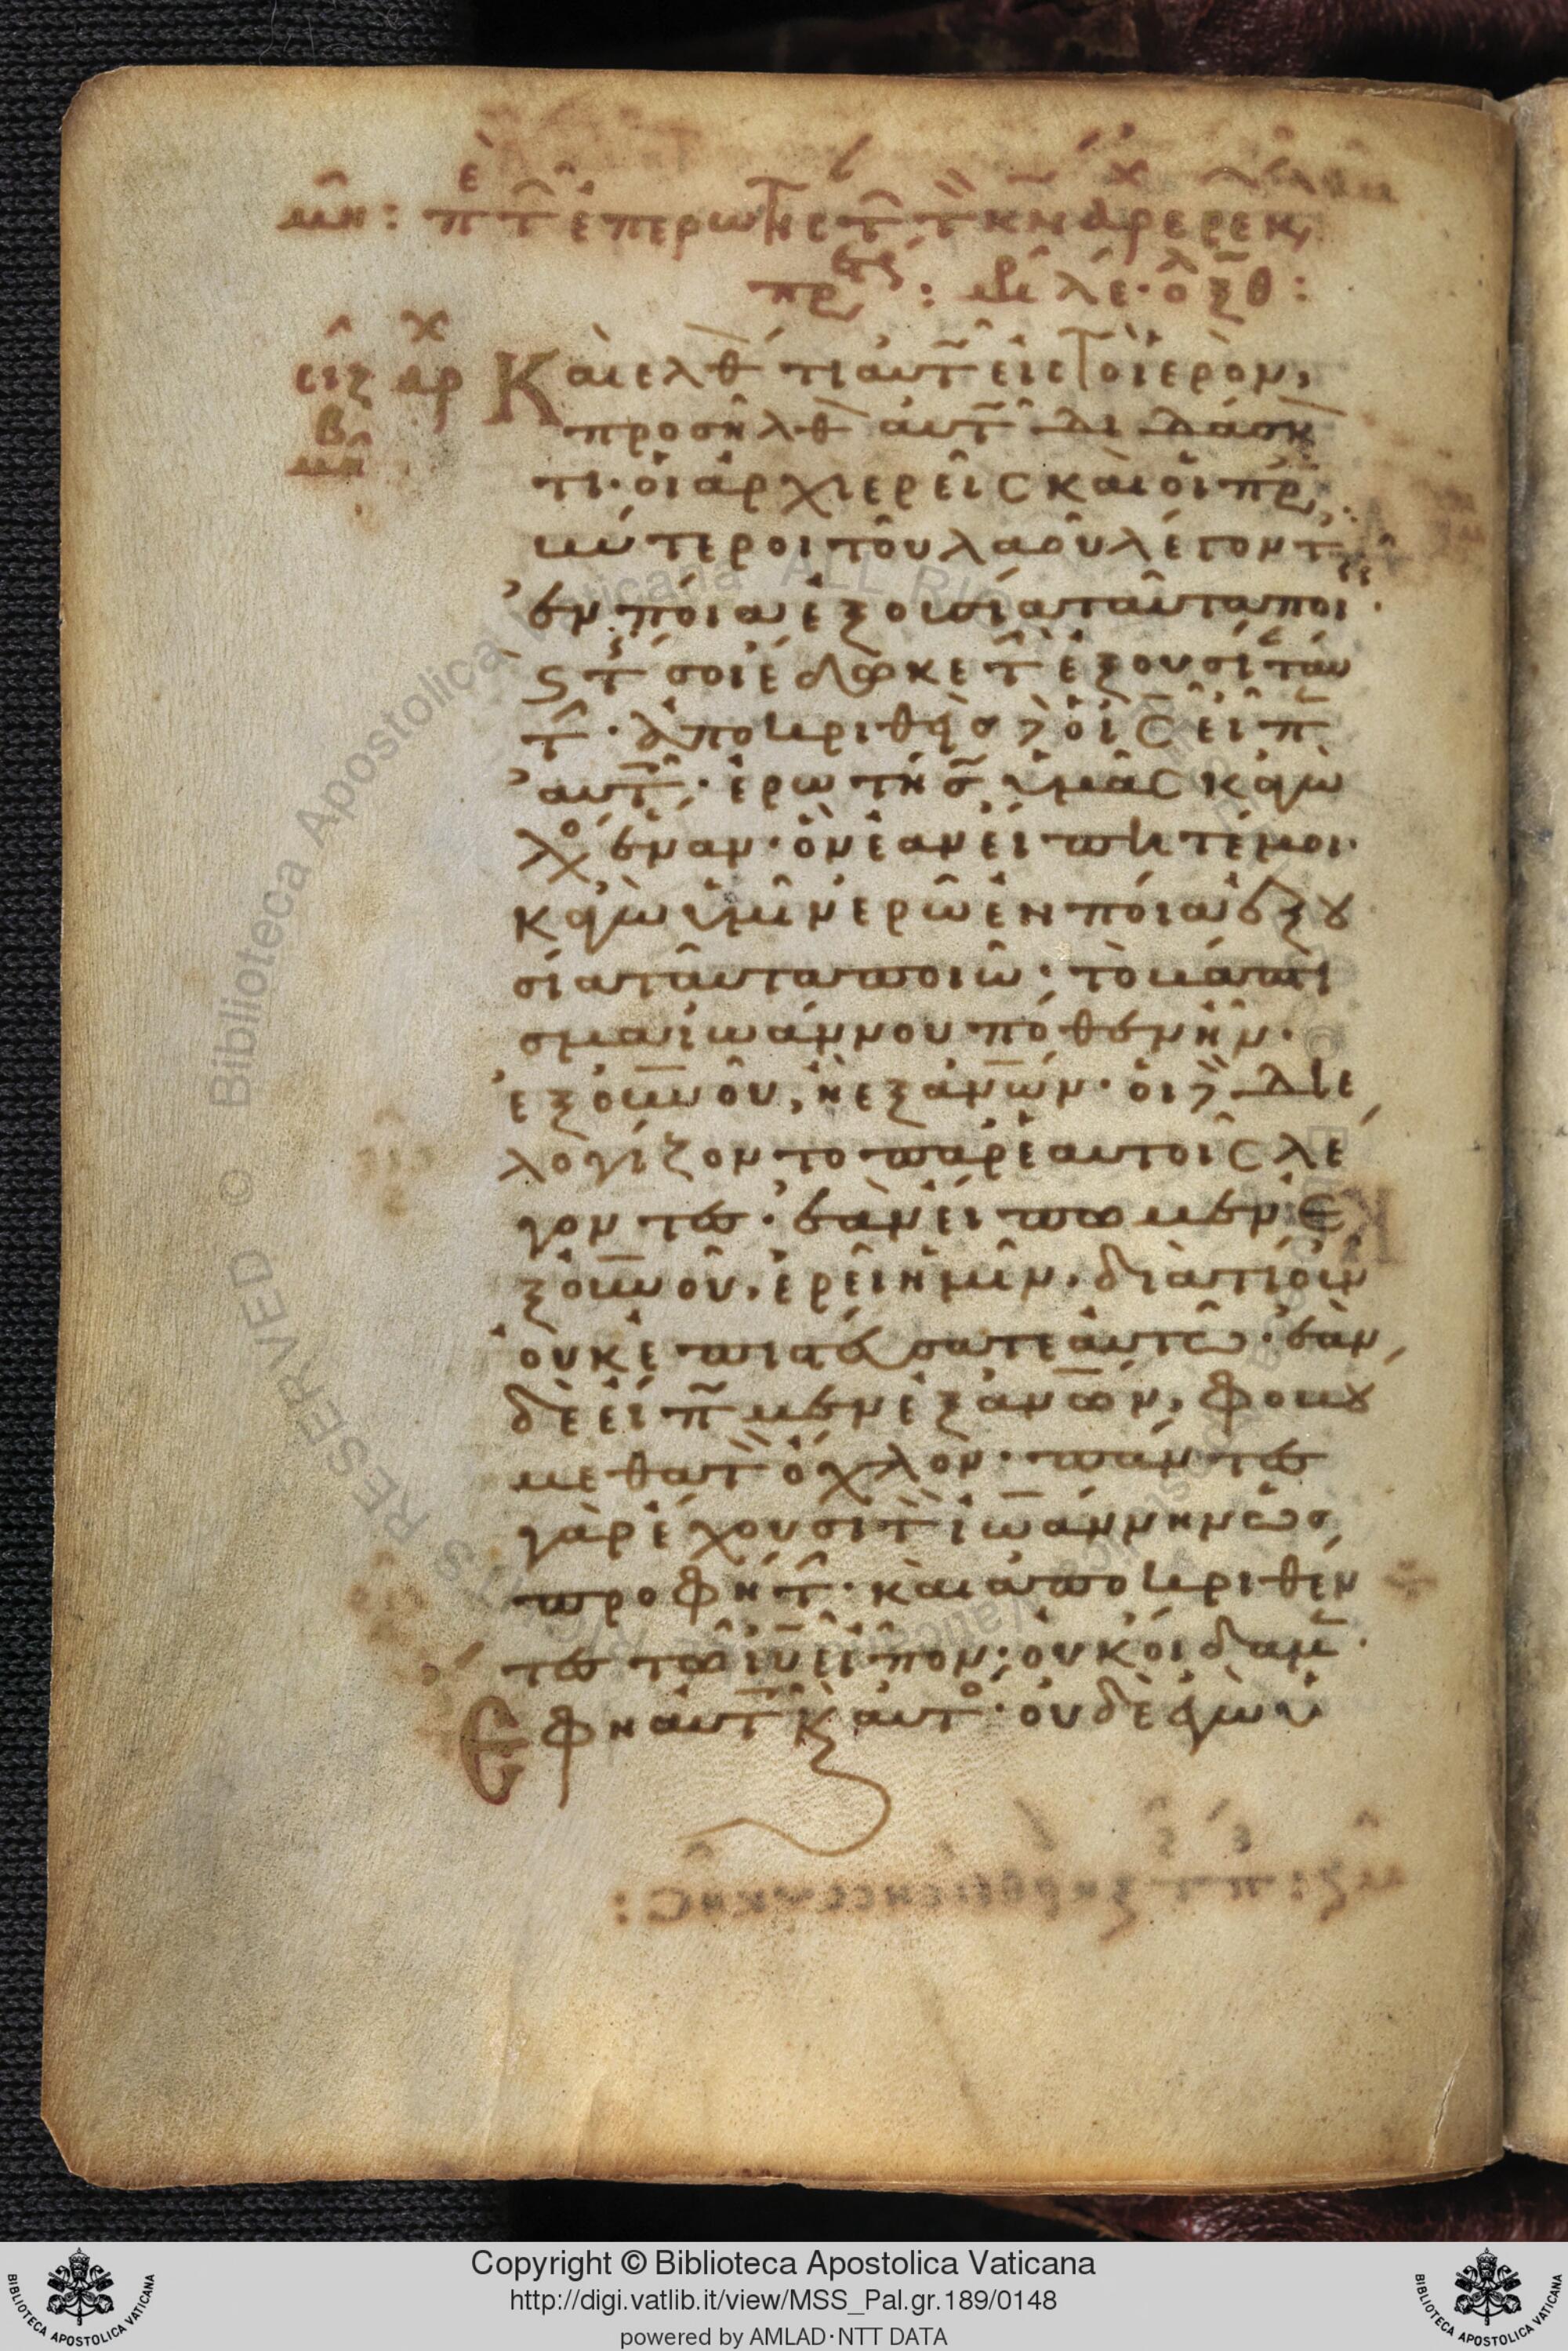 μη: π τ επερωτησ τ τ κν αρχερε κ,
πρ :
εις αρχ
β
μη
Και ελθ τι αυτ εις το ιερον,
προσηλθ αυτ διδασκ
τι· οι αρχιερεις και οι πρ
βυτεροι του λαου λεγοντ
εν ποια εξουσια ταυτα ποι
ϛ τ σοι εδωκε τ εξουσι ταυ
τ · αποκριθεις δ ο ις ειπ
αυτ · ερωτησ υμας καγω
λογ εναν· ον εαν ειπητε μοι·
καγω υμιν ερω εν ποια εξου
σια ταυτα ποιω· το βαπτι
σμα ιωαννου ποθεν ην·
εξ ουνου, η εξ ανων· οι δ διε
λογιζοντο παρ εαυτοις λε
γοντες· εαν ειπωμεν ε
ξ ουνου, ερει ημιν· διατι ουν
ουκ επιστευσατε αυτω· εαν
δε ειπωμεν εξ ανων, φοβου
μεθα τ οχλον· παντες
γαρ εχουσι τ ιωαννην ως
προφητ · και αποκριθεν
τες τω ιυ ειπον· ουκ οιδαμ·
Εφη αυτ κ αυτο· ουδε εγω υ
Copyright © Biblioteca Apostolica Vaticana
http://digi.vatlib.it/view/MSS_Pal.gr.189/0148
powered by AMLAD·NTT DATA
BIBLIOTECA APOSTOLICA VATICANA
BIBLIOTECA APOSTOLICA VATICANA